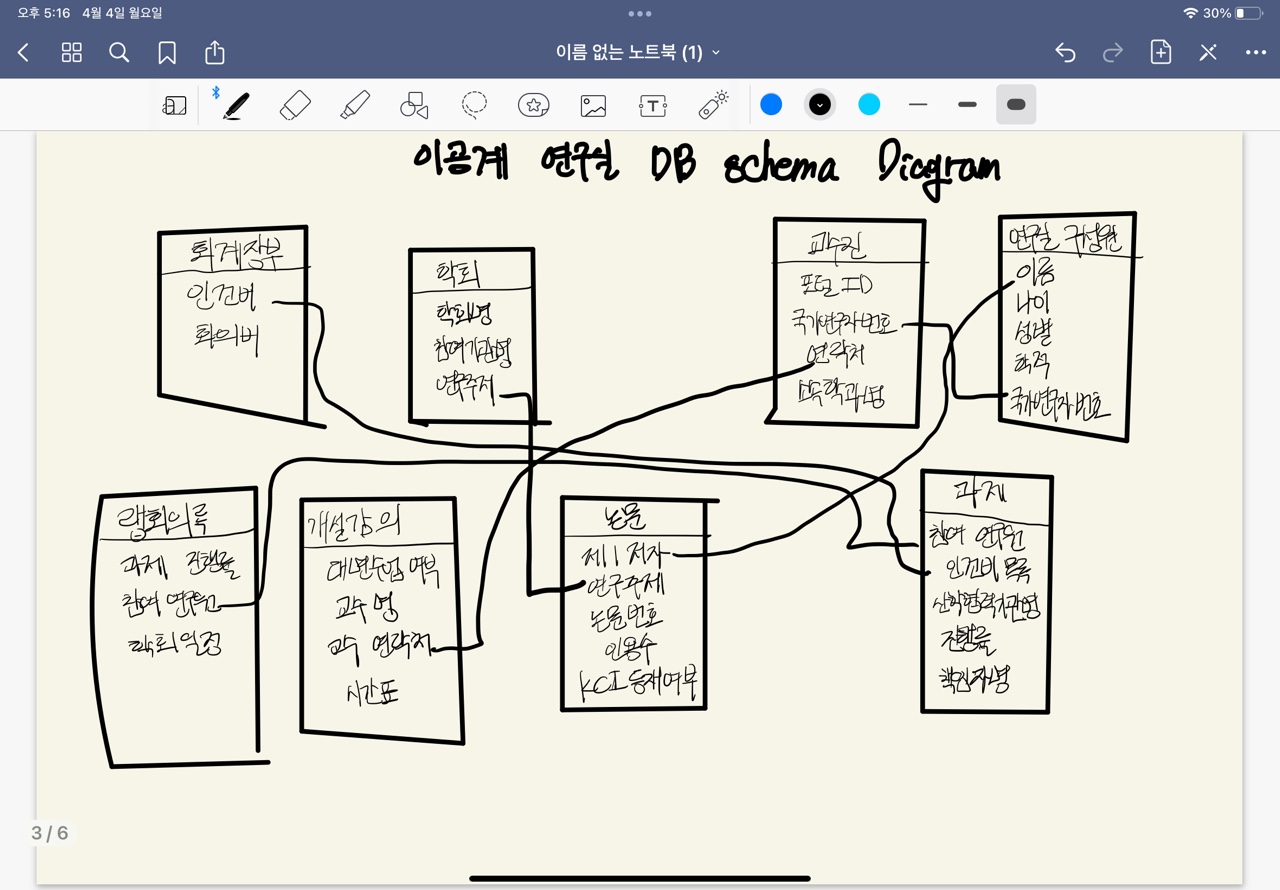 오후 5:16 4월 4일 월요일
30%
이름 없는 노트북 (1)
이공계 연구실 DB schema Diagram
회계장부
인건비
회의비
학회
학회명
참여기관명
연구주제
교수진
포털 ID
국가연구자번호
연락처
소속학과명
연구실 구성원
이름
나이
성별
학적
국가연구자번호
랩회의록
과제 진행률
참여 연구원
학회일정
개설강의
대면수업 여부
교수명
교수 연락처
시간표
논문
제1저자
연구주제
논문번호
인용수
KCI 등재여부
과제
참여 연구원
인건비 목록
산학협력기관명
진행률
책임자명
3 / 6